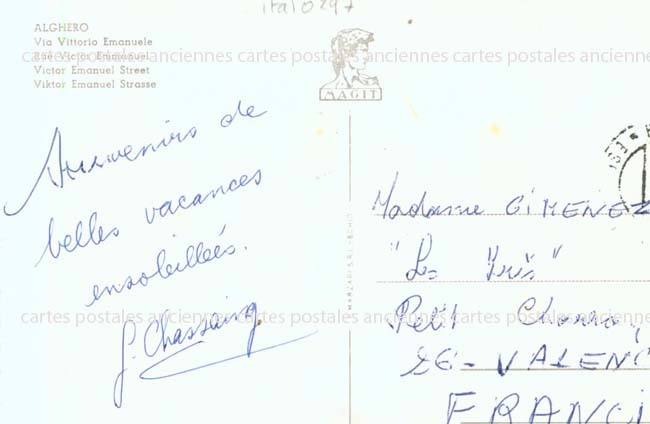 ital0297
ALGHERO
Via Vittorio Emanuele
Rue Victor Emmanuel
Victor Emanuel Street
Viktor Emanuel Strasse
cartes postales anciennes cartes postales anciennes cartes postales anciennes
MAGIT
Souvenirs de
belles vacances
ensoleillées.
G. Chassaing
Madame GIMENEZ
"Les Iris"
Petit
26 - VALENC
FRANC
cartes postales anciennes cartes postales anciennes cartes postales anciennes